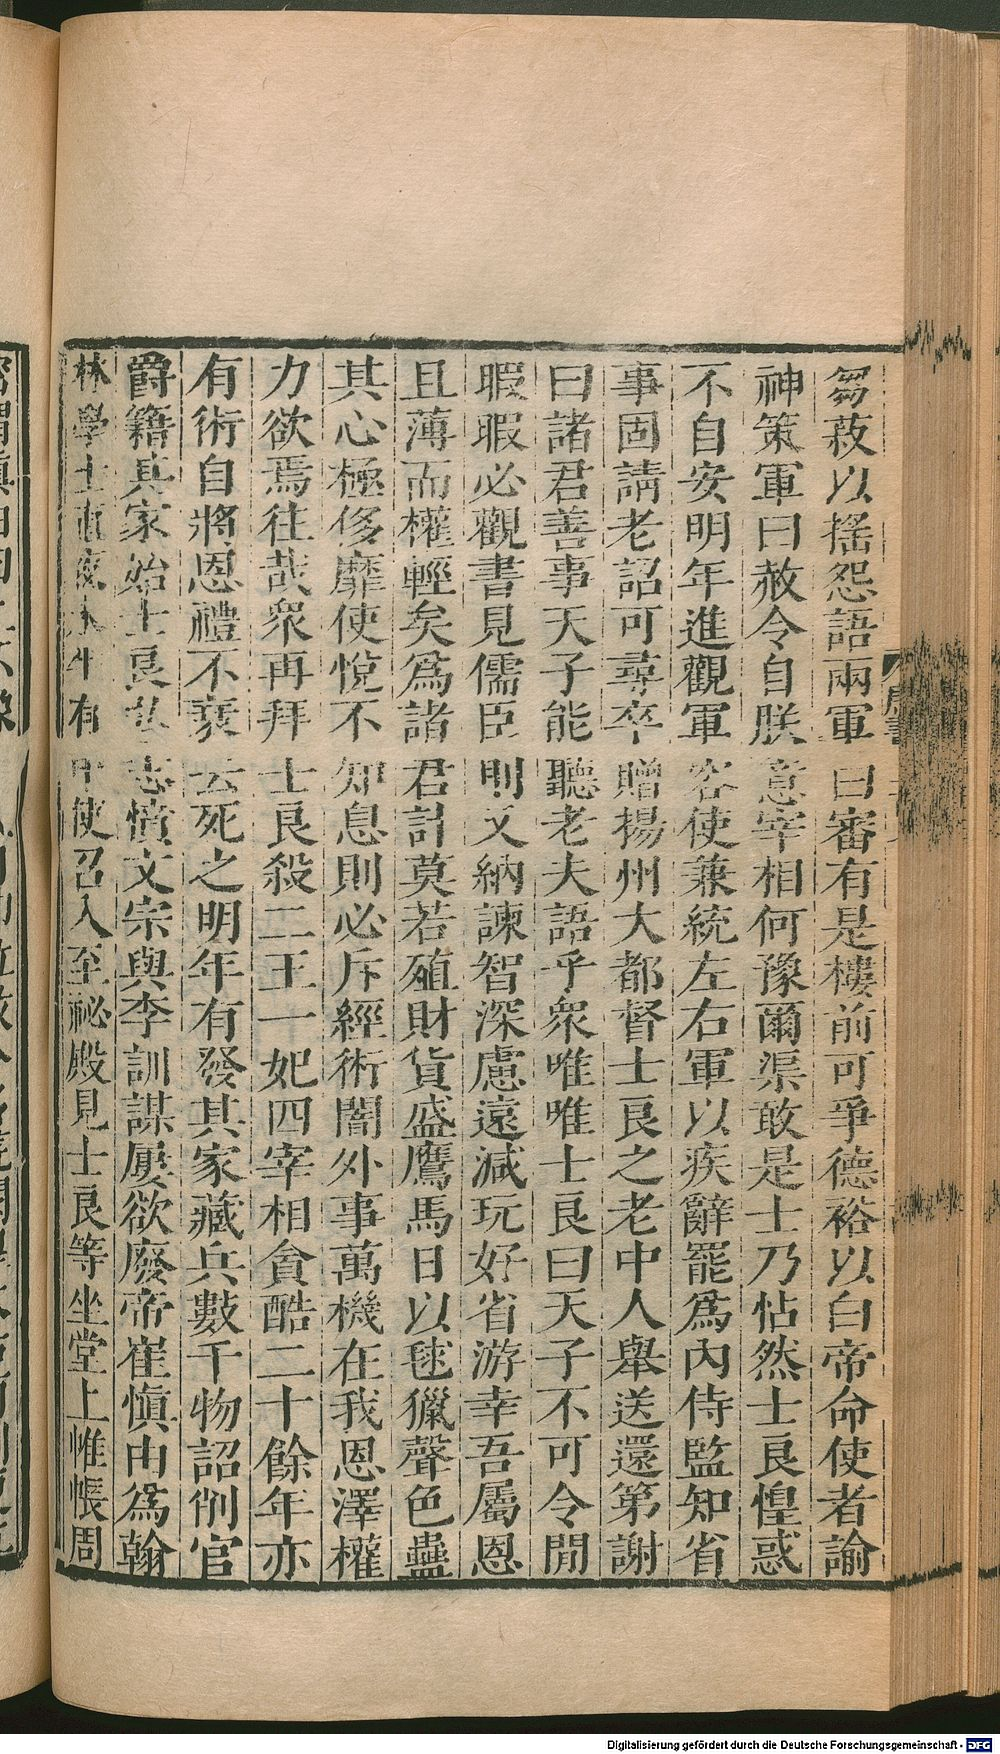 芻菽以搖怨語兩軍曰審有是樓前可爭德裕以白帝命使者諭
神策軍曰赦令自朕意宰相何豫爾渠敢是士乃怗然士良惶惑
不自安明年進觀軍容使兼統左右軍以疾辭罷爲內侍監知省
事固請老詔可尋卒贈揚州大都督士良之老中人舉送還第謝
曰諸君善事天子能聽老夫語乎衆唯唯士良曰天子不可令閒
暇暇必觀書見儒臣則又納諫智深慮遠減玩好省游幸吾屬恩
且薄而權輕矣爲諸君計莫若殖財貨盛鷹馬日以毬獵聲色蠱
其心極侈靡使悅不知息則必斥經術闇外事萬機在我恩澤權
力欲焉往哉衆再拜士良殺二王一妃四宰相貪酷二十餘年亦
有術自將恩禮不衰云死之明年有發其家藏兵數千物詔削官
爵籍其家始士良憤文宗與李訓謀屢欲廢帝崔愼由爲翰
林學士直夜有中使召入至祕殿見士良等坐堂上帷帳周
唐書
Digitalisierung gefördert durch die Deutsche Forschungsgemeinschaft - DFG